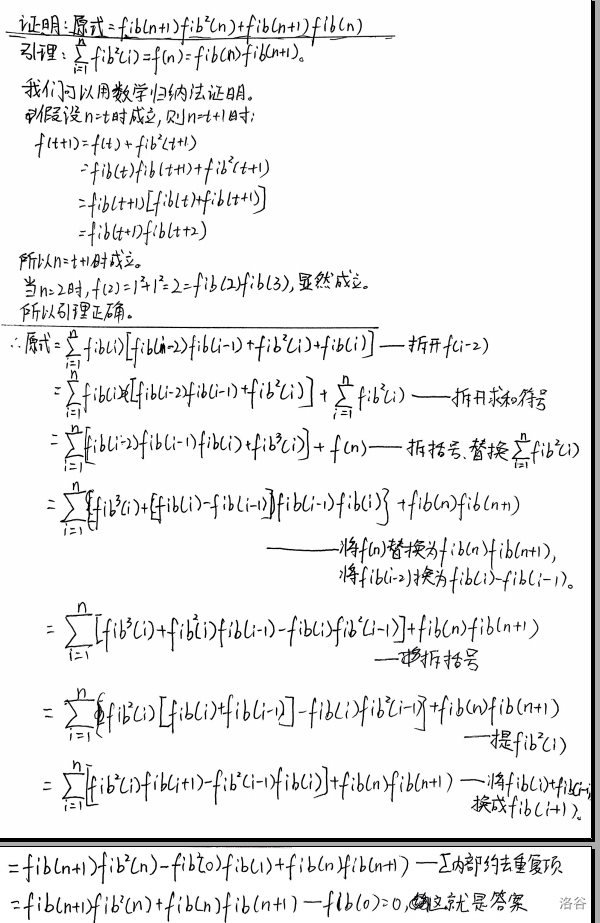 证明:原式=fib(n+1)fib²(n)+fib(n+1)fib(n)
引理:∑ⁿᵢ₌₁fib²(i)=f(n)=fib(n)fib(n+1)。
我们可以用数学归纳法证明。
假设n=t时成立,则n=t+1时:
f(t+1)=f(t)+fib²(t+1)
=fib(t)fib(t+1)+fib²(t+1)
=fib(t+1)[fib(t)+fib(t+1)]
=fib(t+1)fib(t+2)
所以n=t+1时成立。
当n=2时,f(2)=1²+1²=2=fib(2)fib(3),显然成立。
所以引理正确。
∴原式=∑ⁿᵢ₌₁fib(i)[fib(i-2)fib(i-1)+fib²(i)+fib(i)]——拆开f(i-2)
=∑ⁿᵢ₌₁fib(i)[fib(i-2)fib(i-1)+fib²(i)]+∑ⁿᵢ₌₁fib²(i)——拆开求和符号
=∑ⁿᵢ₌₁[fib(i-2)fib(i-1)fib(i)+fib³(i)]+f(n)——拆括号、替换∑ⁿᵢ₌₁fib²(i)
=∑ⁿᵢ₌₁{fib³(i)+[fib(i)-fib(i-1)]fib(i-1)fib(i)}+fib(n)fib(n+1)
——将f(n)替换为fib(n)fib(n+1),
将fib(i-2)换为fib(i)-fib(i-1)。
=∑ⁿᵢ₌₁[fib³(i)+fib²(i)fib(i-1)-fib(i)fib²(i-1)]+fib(n)fib(n+1)
——拆括号
=∑ⁿᵢ₌₁{fib²(i)[fib(i)+fib(i-1)]-fib(i)fib²(i-1)}+fib(n)fib(n+1)
——提fib²(i)
=∑ⁿᵢ₌₁[fib²(i)fib(i+1)-fib²(i-1)fib(i)]+fib(n)fib(n+1)——将fib(i)+fib(i-1)
换成fib(i+1)。
=fib(n+1)fib²(n)-fib²(0)fib(1)+fib(n)fib(n+1)—∑内部约去重复项
=fib(n+1)fib²(n)+fib(n)fib(n+1)—fib(0)=0,这就是答案
洛谷